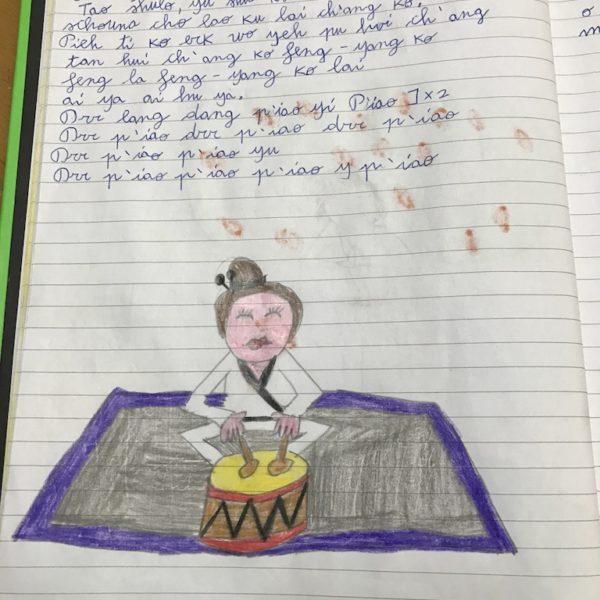 Tao shulo, yu
schouna cho lao ku lai ch'ang ko,
Pieh ti ko erk wo yeh pu hvi ch'ang
tan hui ch'ang ko feng-yang ko
feng la feng-yang ko lai
ai ya ai hu ya.
Drr lang dang p'iao yi Piao ] x 2
Drr p'iao drr p'iao drr p'iao
Drr p'iao p'iao yu
Drr p'iao p'iao p'iao y p'iao